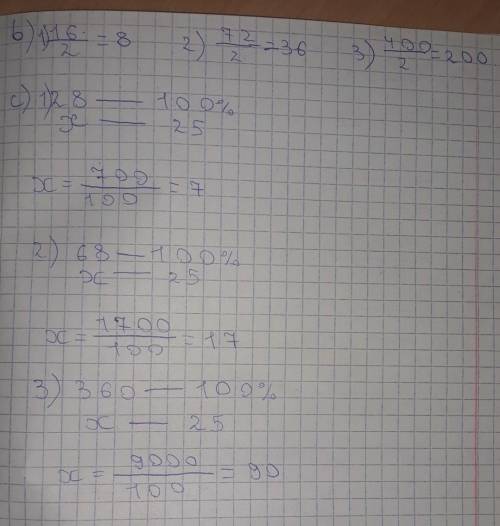 b) 1) 16/2 = 8 2) 72/2 = 36 3) 400/2 = 200
c) 1) 28 — 100%
x — 25
x = 700/100 = 7
2) 68 — 100%
x — 25
x = 1700/100 = 17
3) 360 — 100%
x — 25
x = 9000/100 = 90